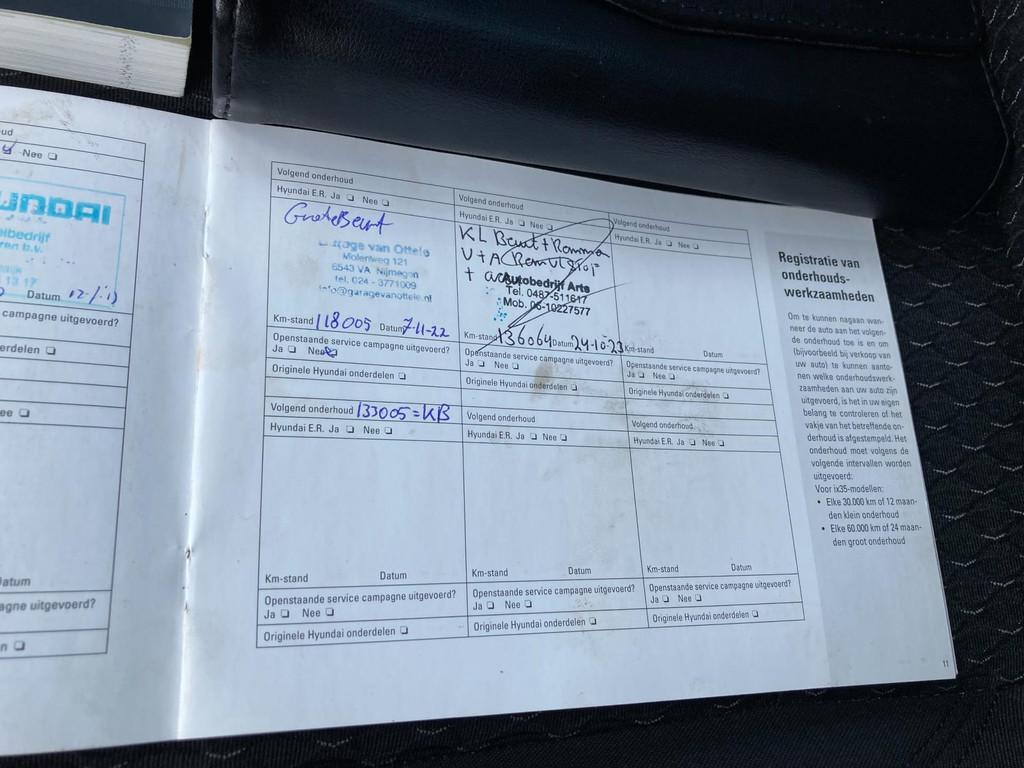 ud
Nee
HYUNDAI
bedrijf
ren b.v.
13 17
Datum 12-
campagne uitgevoerd?
erdelen
ee
Datum
agne uitgevoerd?
n
Volgend onderhoud
Hyundai E.R. Ja Nee
Grote Beurt
Garage van Ottele
Molenweg 121
6543 VA Nijmegen
tel. 024 - 3771009
info@garagevanottele.nl
Km-stand 118005 Datum 7-11-22
Openstaande service campagne uitgevoerd?
Ja Nee
Originele Hyundai onderdelen
Volgend onderhoud 133005=KB
Hyundai E.R. Ja Nee
Km-stand Datum
Openstaande service campagne uitgevoerd?
Ja Nee
Originele Hyundai onderdelen
Volgend onderhoud
Hyundai E.R. Ja Nee
KL Beurt + Remmen
V+A
+
Autobedrijf Arts
Tel. 0487-511617
Mob. 06-10227577
Km-stand 136064 Datum 24-10-23
Openstaande service campagne uitgevoerd?
Ja Nee
Originele Hyundai onderdelen
Volgend onderhoud
Hyundai E.R. Ja Nee
Km-stand Datum
Openstaande service campagne uitgevoerd?
Ja Nee
Originele Hyundai onderdelen
Volgend onderhoud
Hyundai E.R. Ja Nee
Km-stand Datum
Openstaande service campagne uitgevoerd?
Ja Nee
Originele Hyundai onderdelen
Volgend onderhoud
Hyundai E.R. Ja Nee
Km-stand Datum
Openstaande service campagne uitgevoerd?
Ja Nee
Originele Hyundai onderdelen
Registratie van
onderhouds-
werkzaamheden
Om te kunnen nagaan wan-
neer de auto aan het volgen-
de onderhoud toe is en om
(bijvoorbeeld bij verkoop van
uw auto) te kunnen aanto-
nen welke onderhoudswerk-
zaamheden aan uw auto zijn
uitgevoerd, is het in uw eigen
belang te controleren of het
vakje van het betreffende on-
derhoud is afgestempeld. Het
onderhoud moet volgens de
volgende intervallen worden
uitgevoerd:
Voor ix35-modellen:
• Elke 30.000 km of 12 maan-
den klein onderhoud
• Elke 60.000 km of 24 maan-
den groot onderhoud
11